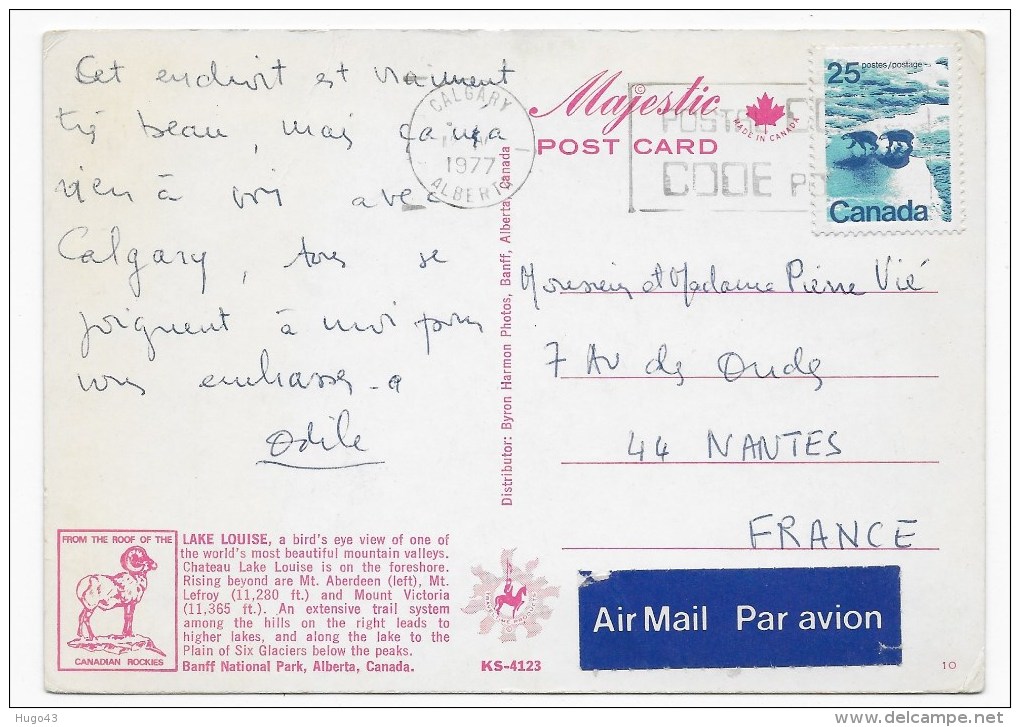 Cet endroit est vraiment
très beau, mais ça n'a
rien à voir avec
Calgary, tous se
joignent à moi pour
vous embrasser
Odile
CALGARY
1977
ALBERTA
Majestic
POST CARD
MADE IN CANADA
POSTAL
CODE
25 postes/postage
Canada
Distributor: Byron Harmon Photos, Banff, Alberta, Canada
Monsieur et Madame Pierre Vié
7 Av des
44 NANTES
FRANCE
Air Mail Par avion
FROM THE ROOF OF THE
CANADIAN ROCKIES
LAKE LOUISE, a bird's eye view of one of
the world's most beautiful mountain valleys.
Chateau Lake Louise is on the foreshore.
Rising beyond are Mt. Aberdeen (left), Mt.
Lefroy (11,280 ft.) and Mount Victoria
(11,365 ft.). An extensive trail system
among the hills on the right leads to
higher lakes, and along the lake to the
Plain of Six Glaciers below the peaks.
Banff National Park, Alberta, Canada.
KS-4123
10
Hugo43
www.delcampe.net